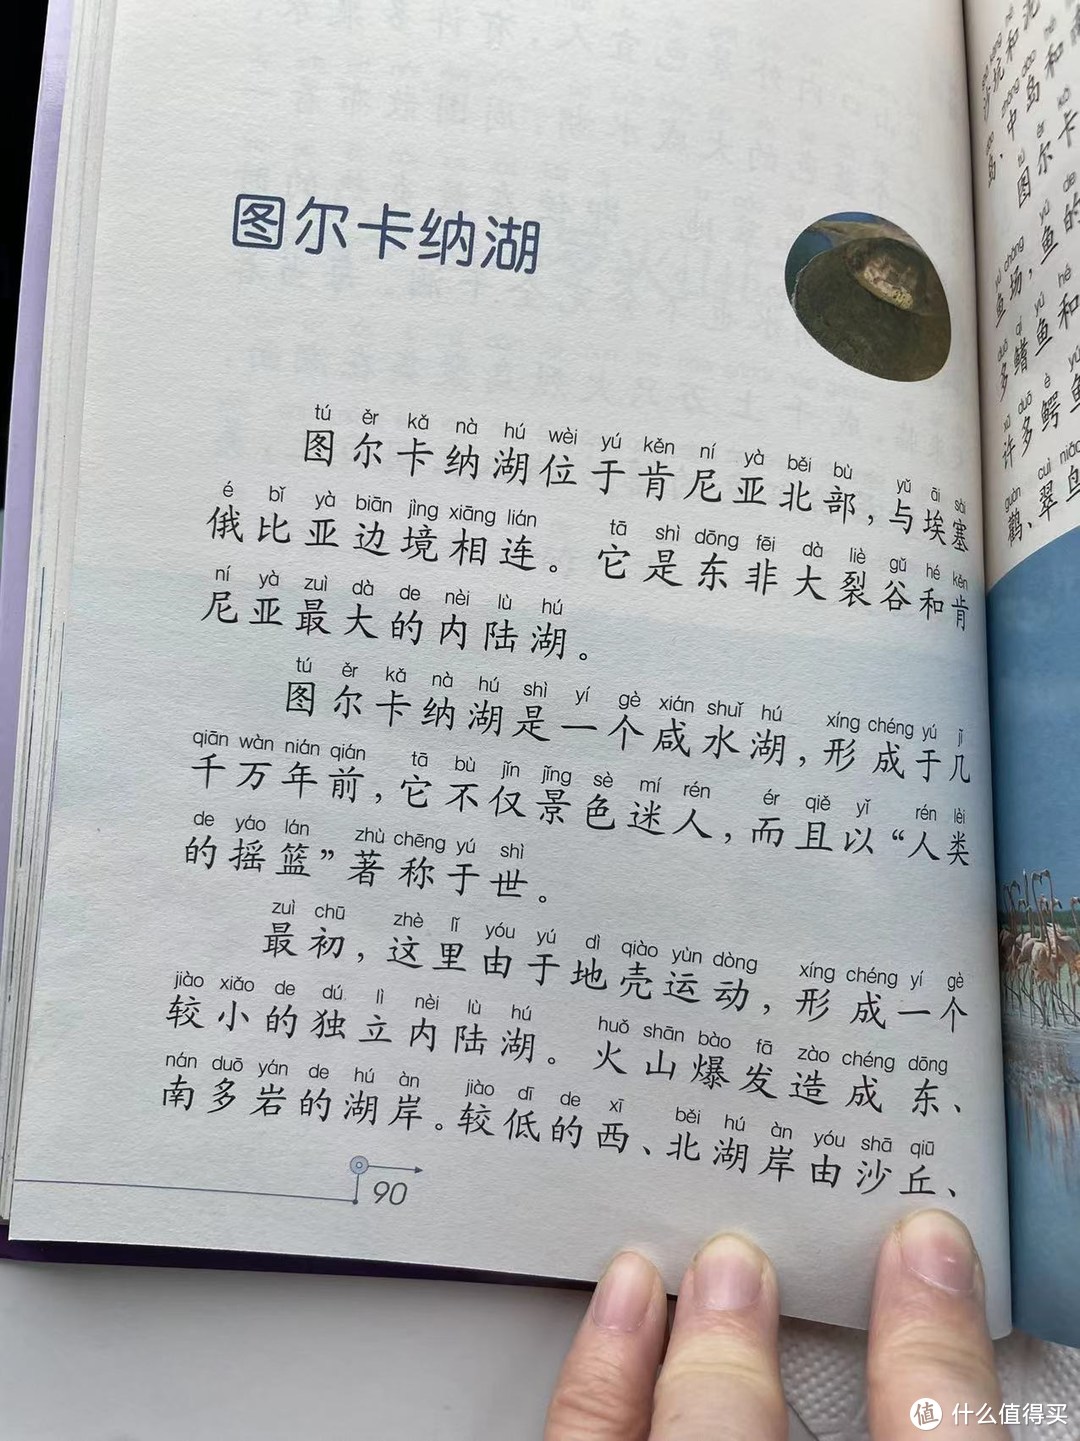 图尔卡纳湖
tú ěr kǎ nà hú wèi yú kěn ní yà běi bù yǔ āi sài
图尔卡纳湖位于肯尼亚北部，与埃塞
é bǐ yà biān jìng xiāng lián tā shì dōng fēi dà liè gǔ hé kěn
俄比亚边境相连。它是东非大裂谷和肯
ní yà zuì dà de nèi lù hú
尼亚最大的内陆湖。
tú ěr kǎ nà hú shì yí gè xián shuǐ hú xíng chéng yú jǐ
图尔卡纳湖是一个咸水湖，形成于几
qiān wàn nián qián tā bù jǐn jǐng sè mí rén ér qiě yǐ rén lèi
千万年前，它不仅景色迷人，而且以“人类
de yáo lán zhù chēng yú shì
的摇篮”著称于世。
zuì chū zhè lǐ yóu yú dì qiào yùn dòng xíng chéng yí gè
最初，这里由于地壳运动，形成一个
jiào xiǎo de dú lì nèi lù hú huǒ shān bào fā zào chéng dōng
较小的独立内陆湖。火山爆发造成东、
nán duō yán de hú àn jiào dī de xī běi hú àn yóu shā qiū
南多岩的湖岸。较低的西、北湖岸由沙丘、
90
沙坑和
岛、中岛和
tú ěr kǎ
图尔卡
yú chǎng yú de
鱼场，鱼的
duō qí yú hé
多鳍鱼和
xǔ duō è yú
许多鳄鱼
guàn cuì niǎo
鹳、翠鸟
值 什么值得买